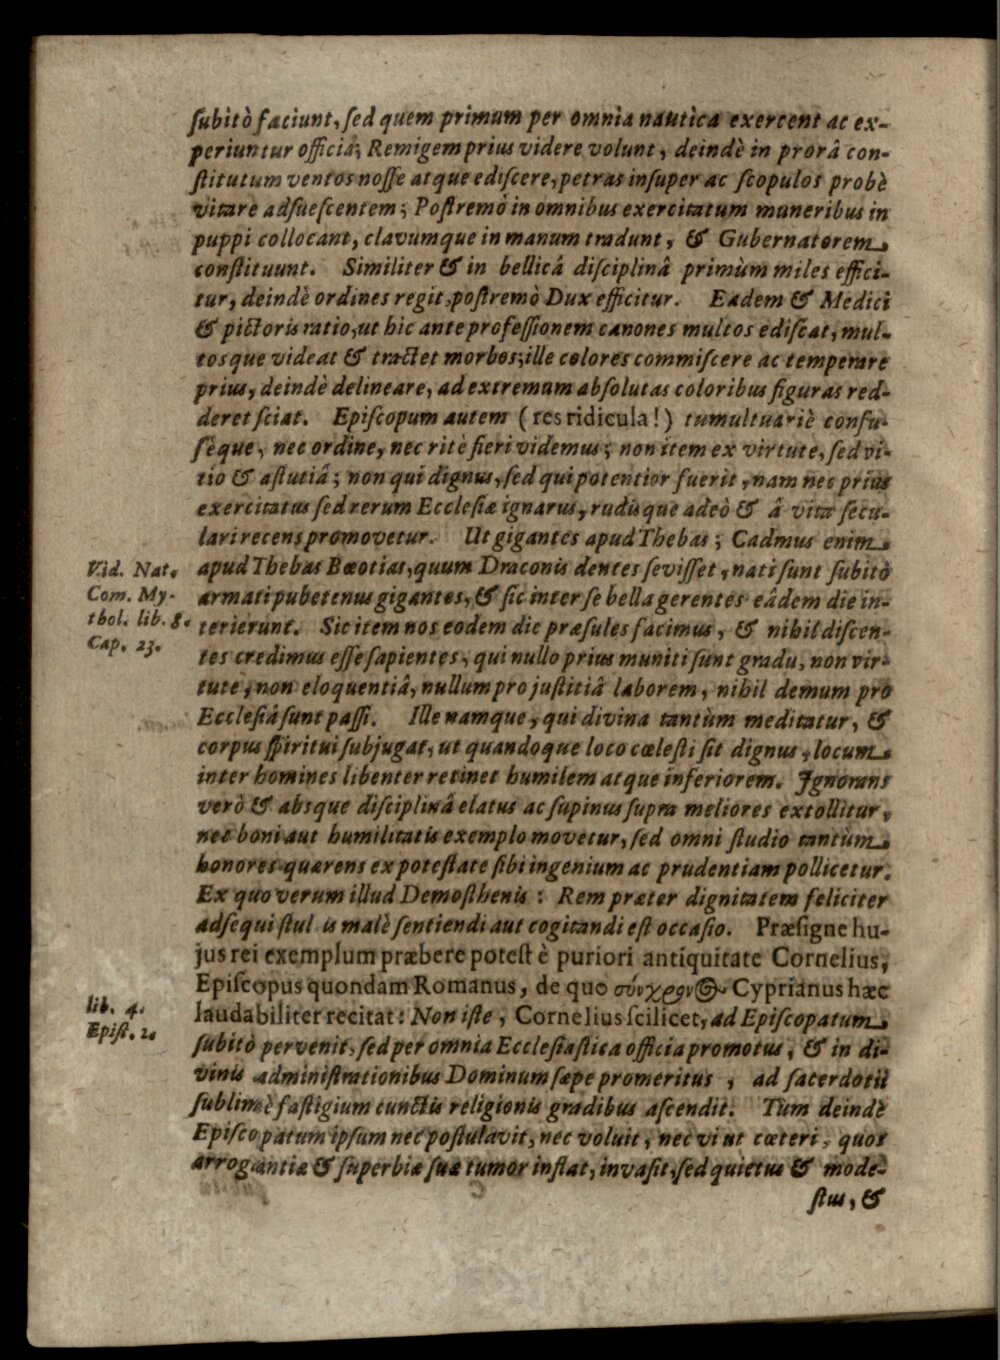 ſubitò faciunt, ſed quem primum per omnia nautica exercent ac ex-
periuntur officia; Remigem prius videre volunt, deindè in prorâ con-
ſtitutum ventos noſſe atque ediſcere, petras inſuper ac ſcopulos probè
vitare adſueſcentem; Poſtremò in omnibus exercitatum muneribus in
puppi collocant, clavumque in manum tradunt, & Gubernatorem
conſtituunt. Similiter & in bellicâ diſciplinâ primùm miles effici-
tur, deindè ordines regit, poſtremò Dux efficitur. Eadem & Medici
& pictoris ratio, ut hic ante profeſſionem canones multos ediſcat, mul-
tosque videat & tractet morbos; ille colores commiſcere ac temperare
prius, deindè delineare, ad extremum abſolutas coloribus figuras red-
deret ſciat. Epiſcopum autem (res ridicula!) tumultuariè confu-
ſèque, nec ordine, nec ritè fieri videmus; non item ex virtute, ſed vi-
tio & aſtutiâ; non qui dignus, ſed qui potentior fuerit, nam nec prius
exercitatus ſed rerum Eccleſiæ ignarus, rudisque adeò & â vita ſecu-
lari recens promovetur. Ut gigantes apud Thebas; Cadmus enim
Vid. Nat.
Com. My-
thol. lib. 8.
Cap. 23.
apud Thebas Bœotias, quum Draconis dentes ſeviſſet, nati ſunt ſubitò
armati pubetenus gigantes, & ſic inter ſe bella gerentes eâdem die in-
terierunt. Sic item nos eodem die præſules facimus, & nihil diſcen-
tes credimus eſſe ſapientes, qui nullo prius muniti ſunt gradu, non vir-
tute, non eloquentiâ, nullum pro juſtitiâ laborem, nihil demum pro
Eccleſiâ ſunt paſſi. Ille namque, qui divina tantùm meditatur, &
corpus ſpiritui ſubjugat, ut quandoque loco cœleſti ſit dignus, locum
inter homines libenter retinet humilem atque inferiorem. Ignorans
verò & absque diſciplinâ elatus ac ſupinus ſupra meliores extollitur,
nec boni aut humilitatis exemplo movetur, ſed omni ſtudio tantùm
honores quærens ex poteſtate ſibi ingenium ac prudentiam pollicetur.
Ex quo verum illud Demoſthenis: Rem præter dignitatem feliciter
adſequi ſtul is malè ſentiendi aut cogitandi eſt occaſio. Præſigne hu-
jus rei exemplum præbere poteſt è puriori antiquitate Cornelius,
Epiſcopus quondam Romanus, de quo σύγχρον<span>Θ</span> Cyprianus hæc
lib. 4.
Epiſt. 2.
laudabiliter recitat: Non iſte, Cornelius ſcilicet, ad Epiſcopatum
ſubitò pervenit, ſed per omnia Eccleſiaſtica officia promotus, & in di-
vinis adminiſtrationibus Dominum ſæpe promeritus, ad ſacerdotii
ſublimè faſtigium cunctis religionis gradibus aſcendit. Tùm deindè
Epiſcopatum ipſum nec poſtulavit, nec voluit, nec vi ut cœteri, quos
arrogantiæ & ſuperbiæ ſuæ tumor inflat, invaſit, ſed quietus & mode-
ſtus, &